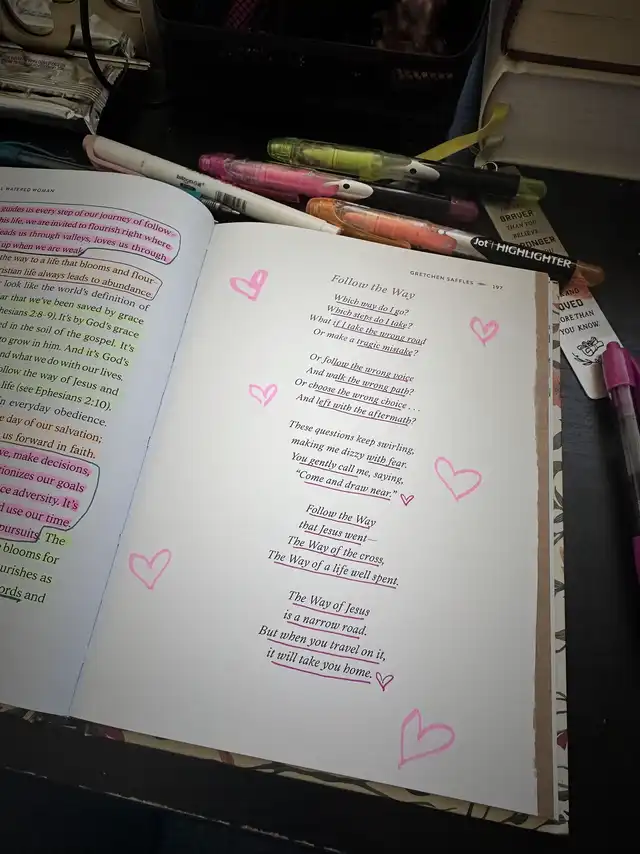 L WATERED WOMAN
guides us every step of our journey of follow-
his life, we are invited to flourish right where
eads us through valleys, loves us through
up when we are weak
the way to a life that blooms and flour-
ristian life always leads to abundance.
look like the world's definition of
ar that we've been saved by grace
hesians 2:8-9). It's by God's grace
ed in the soil of the gospel. It's
to grow in him. And it's God's
and what we do with our lives.
ollow the way of Jesus and
life (see Ephesians 2:10).
n everyday obedience.
e day of our salvation;
us forward in faith.
ve, make decisions,
tionizes our goals
ce adversity. It's
d use our time
pursuits. The
blooms for
urishes as
ords and
GRETCHEN SAFFLES 197
Follow the Way
Which way do I go?
Which steps do I take?
What if I take the wrong road
Or make a tragic mistake?
Or follow the wrong voice
And walk the wrong path?
Or choose the wrong choice . . .
And left with the aftermath?
These questions keep swirling,
making me dizzy with fear.
You gently call me, saying,
"Come and draw near."
Follow the Way
that Jesus went—
The Way of the cross,
The Way of a life well spent.
The Way of Jesus
is a narrow road.
But when you travel on it,
it will take you home.
Jot HIGHLIGHTER
BRAVER
THAN YOU
BELIEVE
RONGER
AND
OVED
MORE THAN
YOU KNOW.